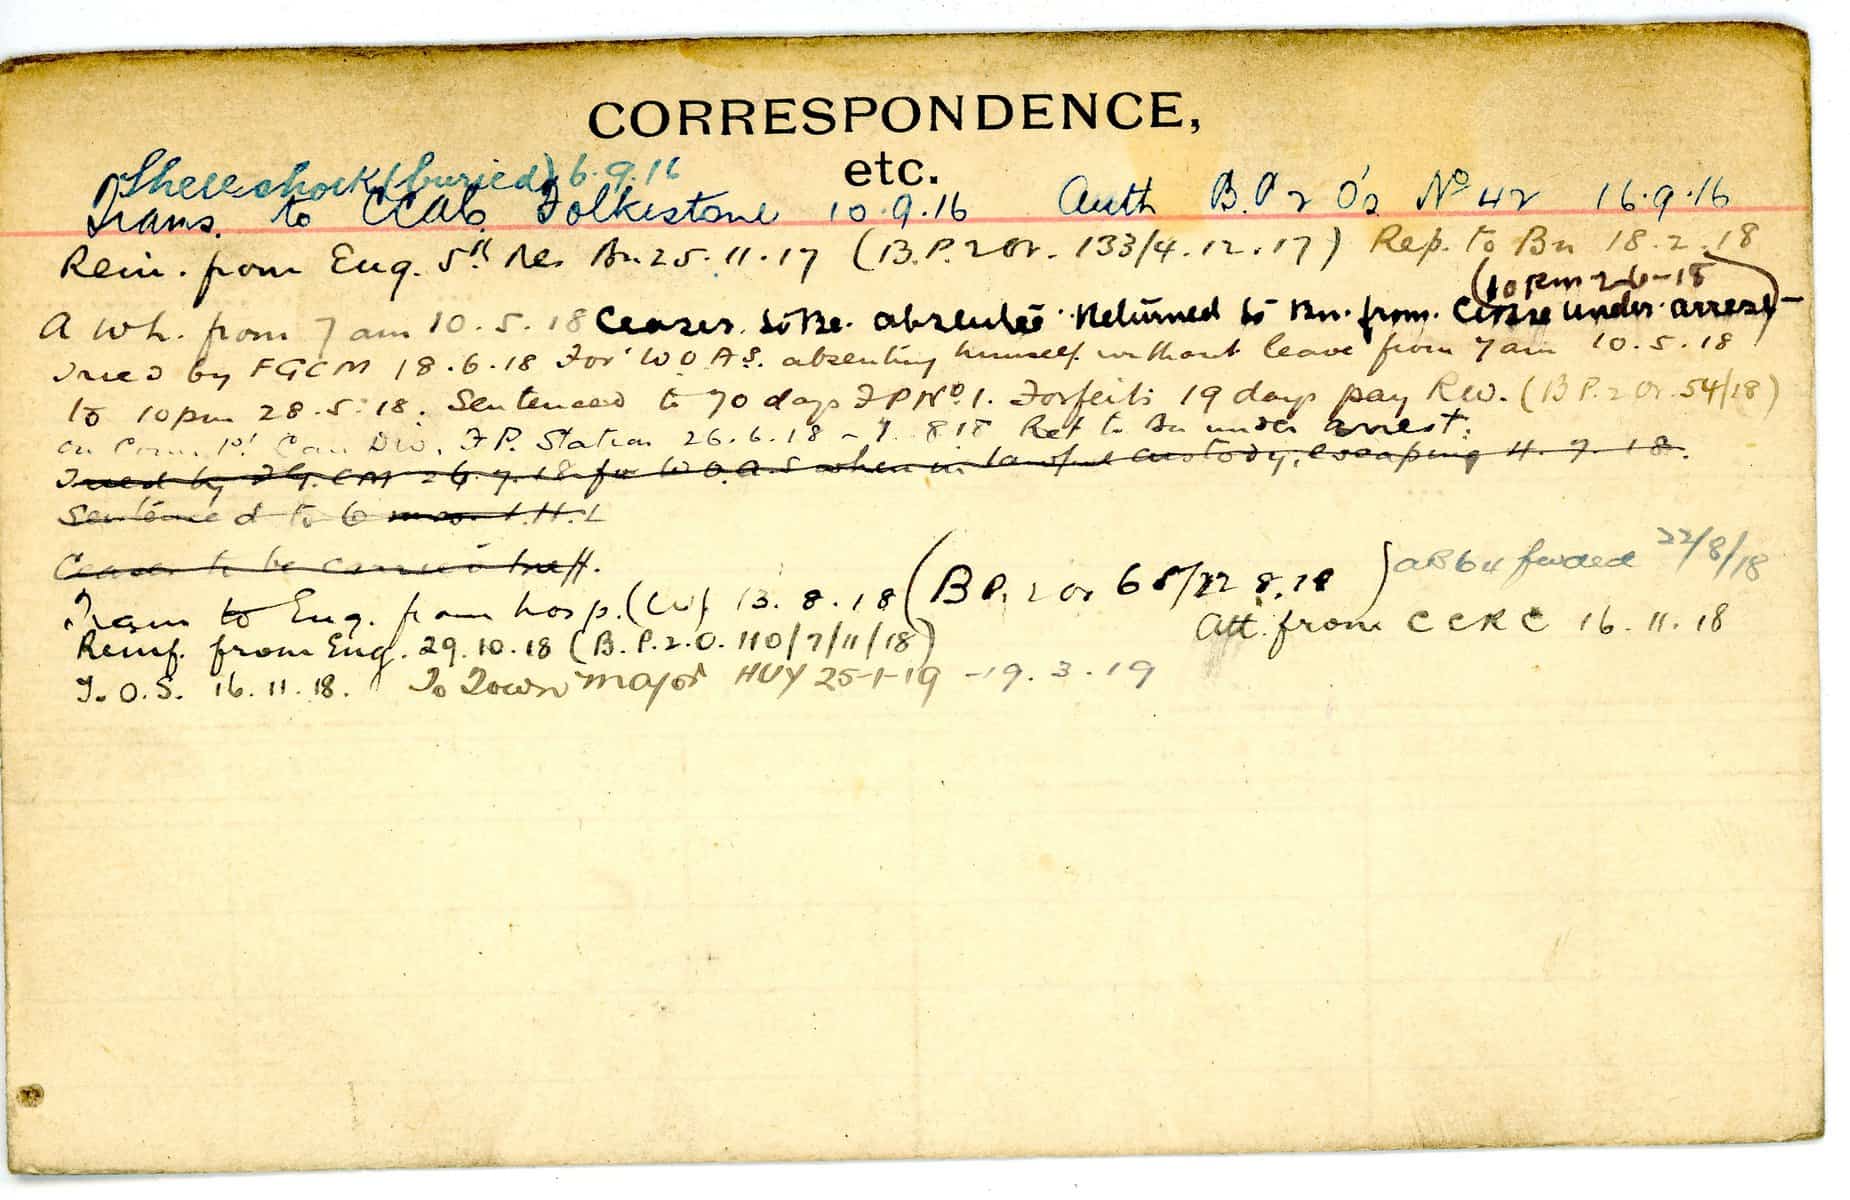 CORRESPONDENCE,
etc.
Shellshock (buried) 6.9.16
Trans. to CCAC Folkestone 10.9.16 Auth B.P2 O's No 42 16.9.16
Rein. from Eng. 5th Res Bn 25.11.17 (B.P.2 Or. 133/4.12.17) Rep. to Bn 18.2.18
(10 pm 2-6-18)
A W L. from 7 am 10.5.18 Ceases to be absentee Returned to Bn. from under arrest-
Tried by FGCM 18.6.18 For W.O.A.S. absenting himself without leave from 7am 10.5.18
to 10pm 28.5.18. Sentenced to 70 days F P No. 1. Forfeits 19 days pay R.W. (B P. 2 Or. 54/18)
on Comm. 1st Can Div. F.P. Station 26.6.18 - 7.8.18 Ret to Bn under arrest.
Tried by F.G.CM 26.7.18 for W.O.A.S when in lawful custody, escaping 4.7.18.
Sentenced to 6 mos. I.H.L
Ceases to be
Trans to Eng. from hosp. (W) 13.8.18 (B P. 2 Or 68/22 8.18) AB64 forwded 22/8/18
Reinf. from Eng. 29.10.18 (B.P.2.O. 110/7/11/18) Att. from CCRC 16.11.18
T.O.S. 16.11.18. To Town Major HUY 25-1-19 - 19.3.19